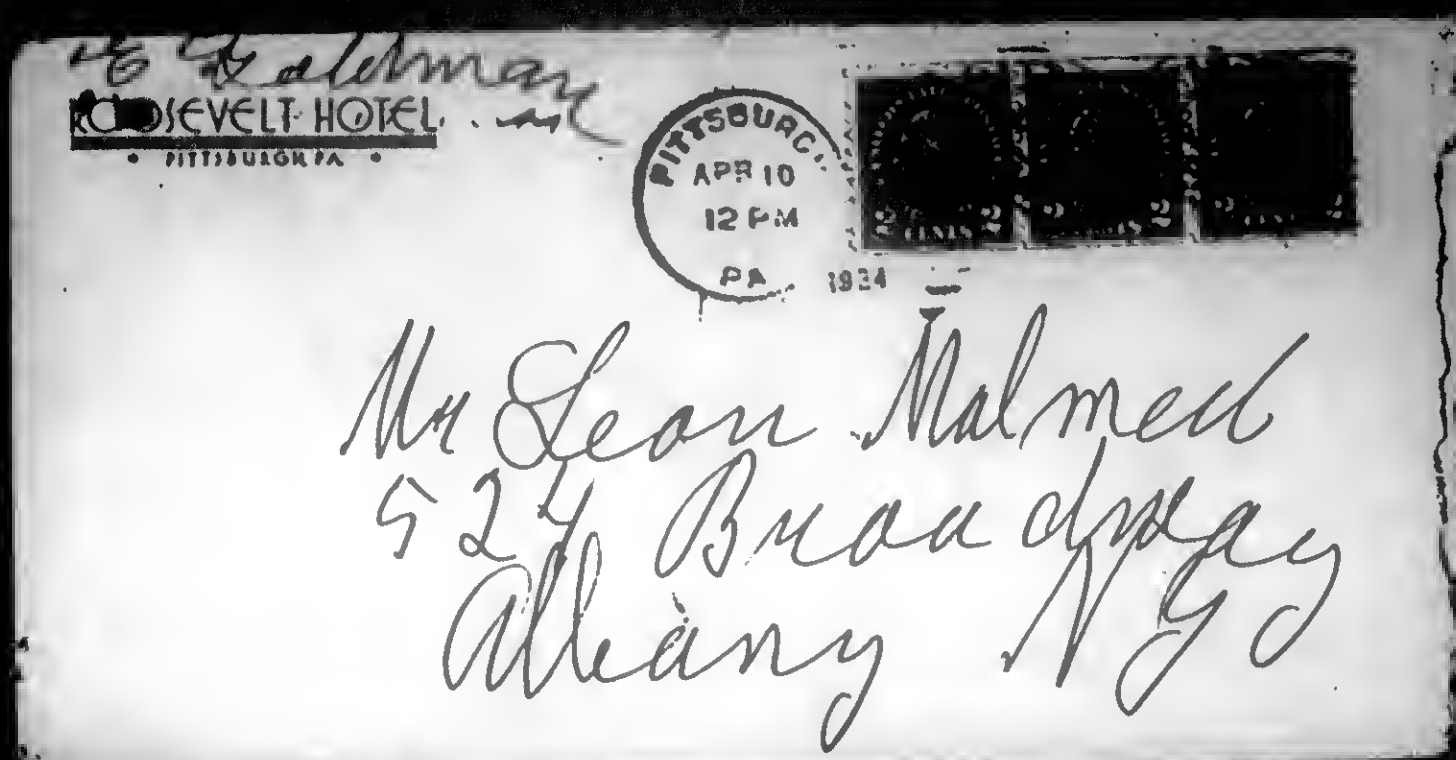 E Goldman
ROOSEVELT HOTEL
• PITTSBURGH, PA •
PITTSBURGH
APR 10
12 PM
PA
1934
2 CENTS 2
2 CENTS 2
2 CENTS 2
Mr Leon Malmed
524 Broadway
Albany NY